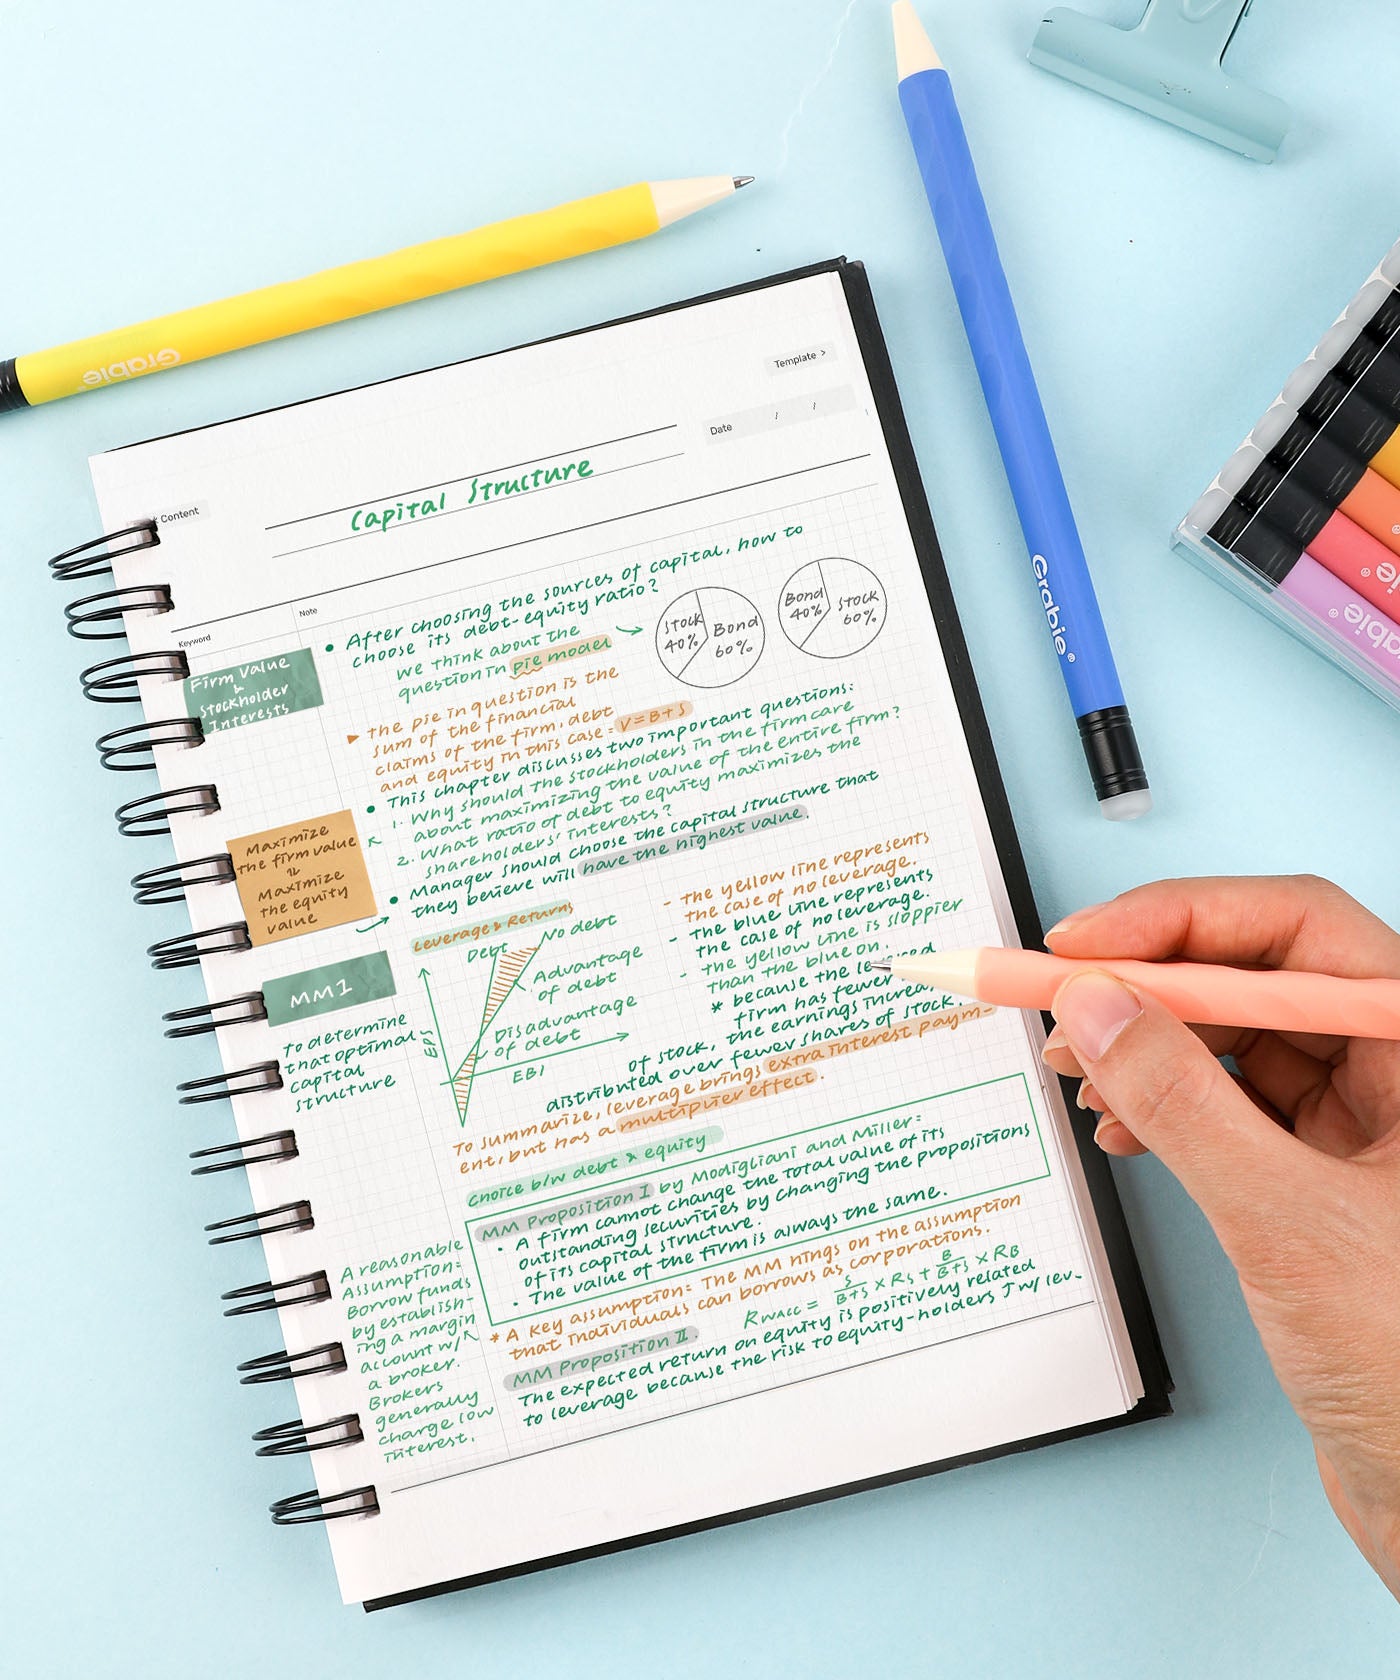 Grabie
Grabie
Grabie
Template >
Date / /
Content
Capital Structure
Keyword
Note
Firm Value
&
Stockholder
Interests
• After choosing the sources of capital, how to
choose its debt-equity ratio?
we think about the
question in pie model
Stock
40%
Bond
60%
Bond
40%
Stock
60%
▶ the pie in question is the
sum of the financial
claims of the firm, debt
and equity in this case: V=B+S
• This chapter discusses two important questions:
1. Why should the stockholders in the firm care
about maximizing the value of the entire firm?
2. What ratio of debt to equity maximizes the
shareholders' interests?
• Manager should choose the capital structure that
they believe will have the highest value.
Maximize
the firm value
Maximize
the equity
value
MM1
To determine
that optimal
capital
structure
Leverage & Returns
Debt
No debt
Advantage
of debt
Disadvantage
of debt
EPS
EBI
- the yellow line represents
the case of no leverage.
- the blue line represents
the case of no leverage.
- the yellow line is sloppier
than the blue on.
* because the
firm has fewer
of stock, the earnings
distributed over fewer shares of stock.
To summarize, leverage brings extra interest paym-
ent, but has a multiplier effect.
choice b/w debt & equity
MM Proposition I by Modigliani and Miller:
• A firm cannot change the total value of its
outstanding securities by changing the propositions
of its capital structure.
• The value of the firm is always the same.
* A key assumption: The MM hings on the assumption
that individuals can borrows as corporations.
RWACC = S/B+S × RS + B/B+S × RB
MM Proposition II.
The expected return on equity is positively related
to leverage because the risk to equity-holders ↑ w/ lev-
A reasonable
Assumption:
Borrow funds
by establish-
ing a margin
account w/
a broker.
Brokers
generally
charge low
interest.